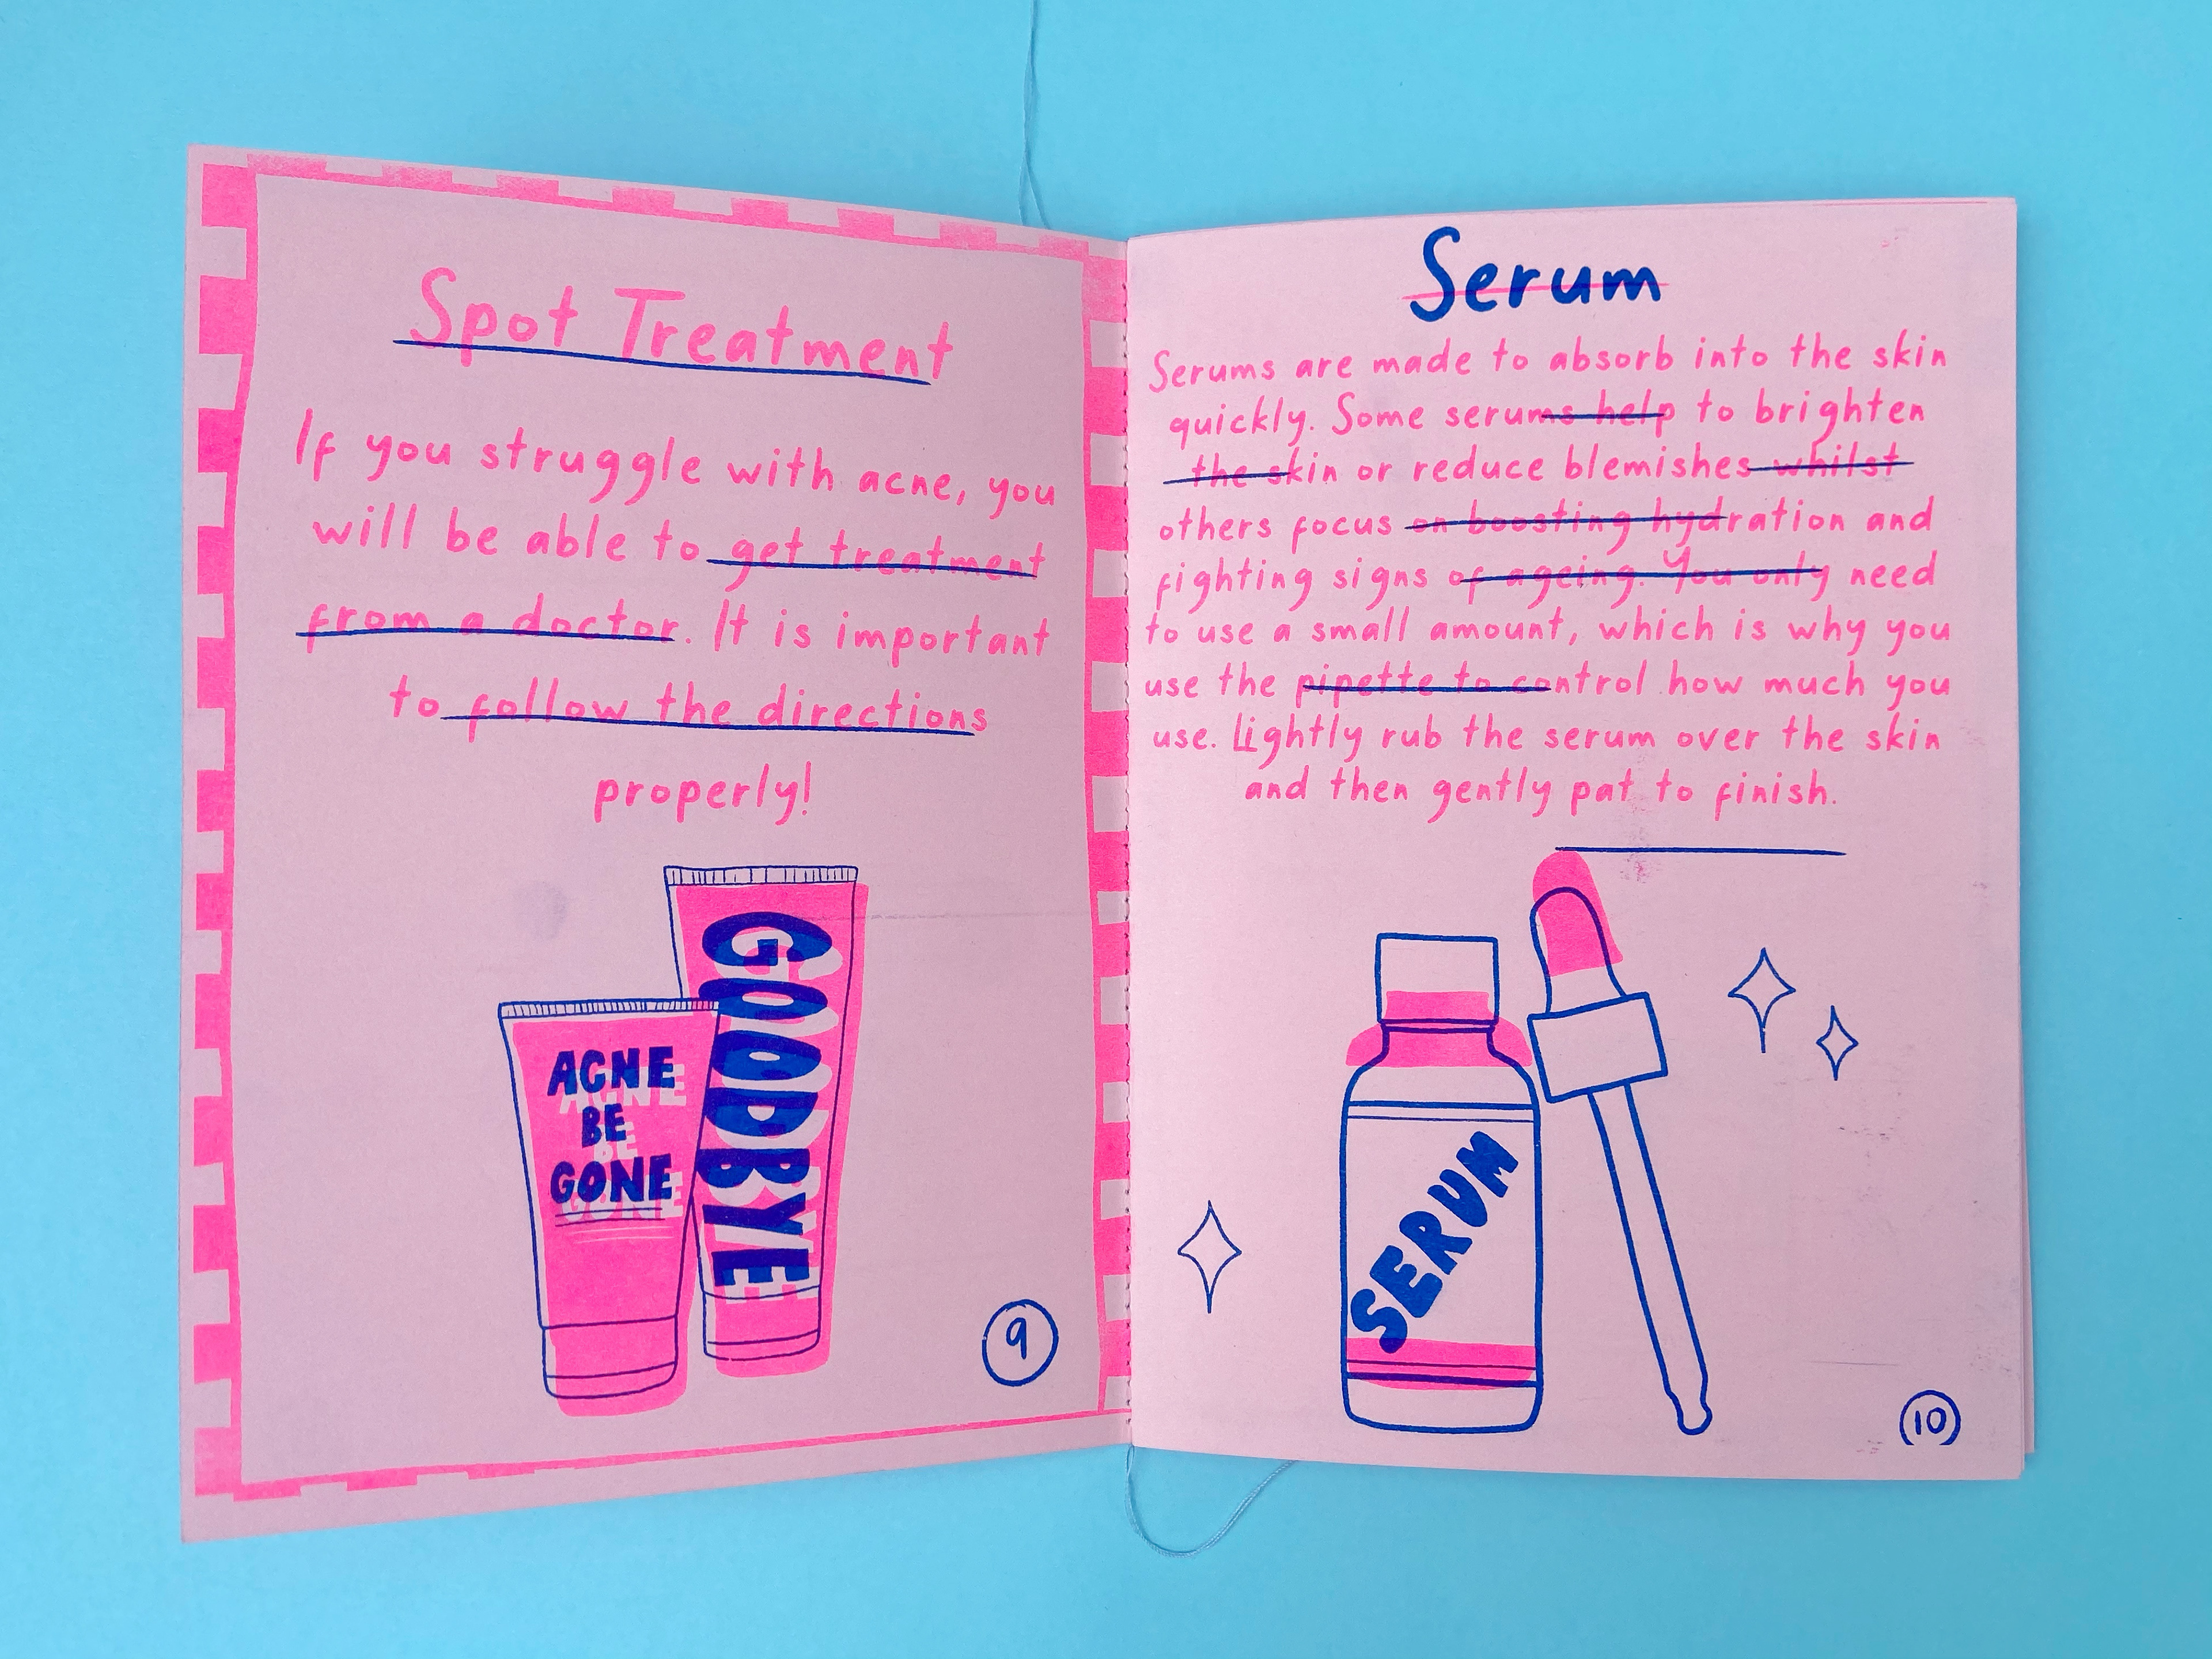 Spot Treatment
If you struggle with acne, you
will be able to get treatment
from a doctor. It is important
to follow the directions
properly!
ACNE
BE
GONE
GOODBYE
9
Serum
Serums are made to absorb into the skin
quickly. Some serums help to brighten
the skin or reduce blemishes whilst
others focus on boosting hydration and
fighting signs of ageing. You only need
to use a small amount, which is why you
use the pipette to control how much you
use. Lightly rub the serum over the skin
and then gently pat to finish.
SERUM
10